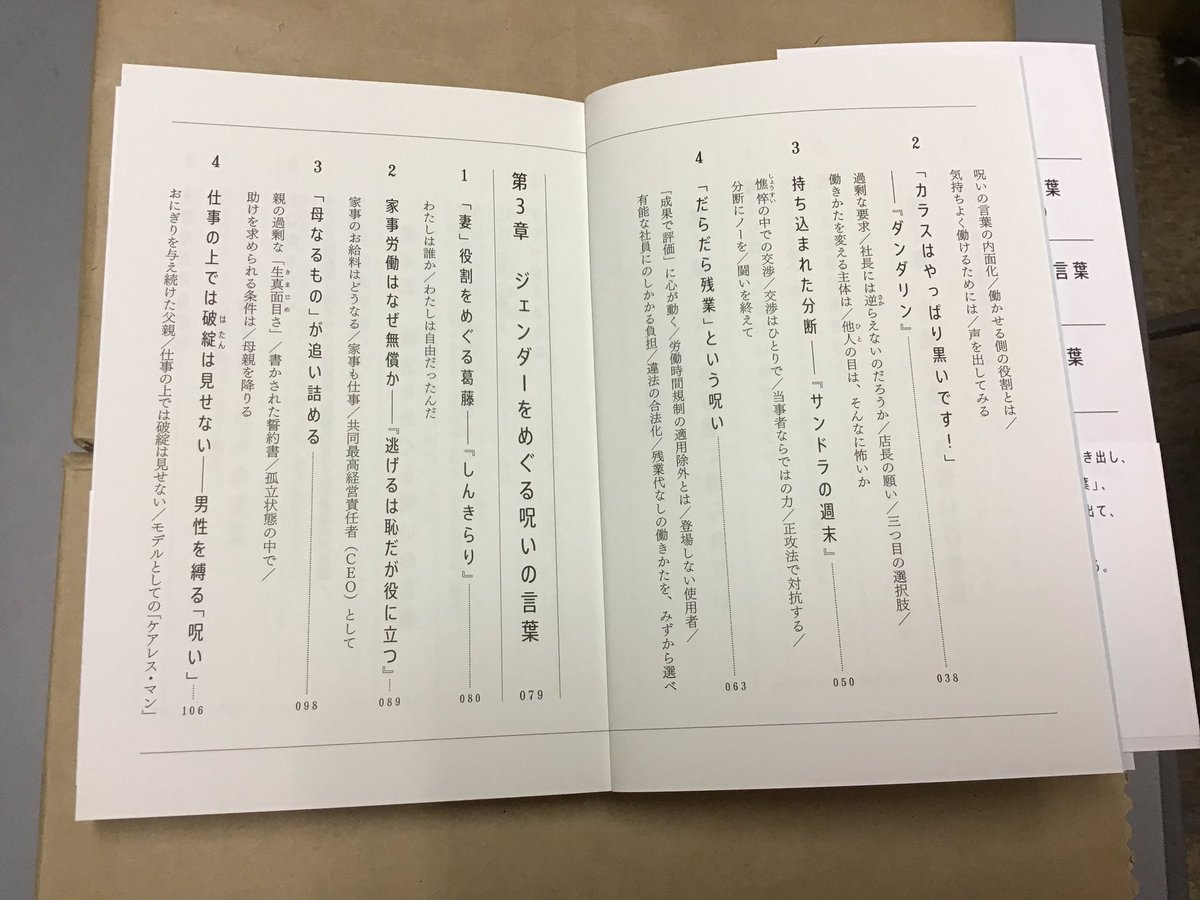 呪いの言葉の内面化／働かせる側の役割とは／
気持ちよく働けるためには／声を出してみる
2 「カラスはやっぱり黒いです！」
――『ダンダリン』 038
過剰な要求／社長には逆らえないのだろうか／店長の願い／三つ目の選択肢／
働きかたを変える主体は／他人の目は、そんなに怖いか
3 持ち込まれた分断――『サンドラの週末』 050
憔悴の中での交渉／交渉はひとりで／当事者ならではの力／正攻法で対抗する／
分断にノーを／闘いを終えて
4 「だらだら残業」という呪い 063
「成果で評価」に心が動く／労働時間規制の適用除外とは／登場しない使用者／
有能な社員にのしかかる負担／違法の合法化／残業代なしの働きかたを、みずから選べ
第3章 ジェンダーをめぐる呪いの言葉 079
1 「妻」役割をめぐる葛藤――『しんきらり』 080
わたしは誰か／わたしは自由だったんだ
2 家事労働はなぜ無償か――『逃げるは恥だが役に立つ』 089
家事のお給料はどうなる／家事も仕事／共同最高経営責任者（CEO）として
3 「母なるもの」が追い詰める 098
親の過剰な「生真面目さ」／書かされた誓約書／孤立状態の中で／
助けを求められる条件は／母親を降りる
4 仕事の上では破綻は見せない――男性を縛る「呪い」 106
おにぎりを与え続けた父親／仕事の上では破綻は見せない／モデルとしての「ケアレス・マン」
葉
言葉
葉
き出し、
葉」、
出て、
る。